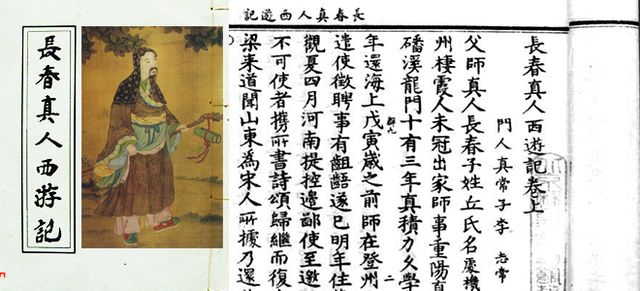 長春真人西游記
長春真人西遊記
長春真人西遊記卷上
門人真常子李志常
父師真人長春子姓丘氏名處機
州棲霞人未冠出家師事重陽真
磻溪龍門十有三年真積力久學
年還海上戊寅歲之前師在登州
遣使徵聘事有齟齬遂已明年住
觀夏四月河南提控邊鄙使至邀
不可使者攜所書詩頌歸繼而復
梁来道聞山東為宋人所據乃還